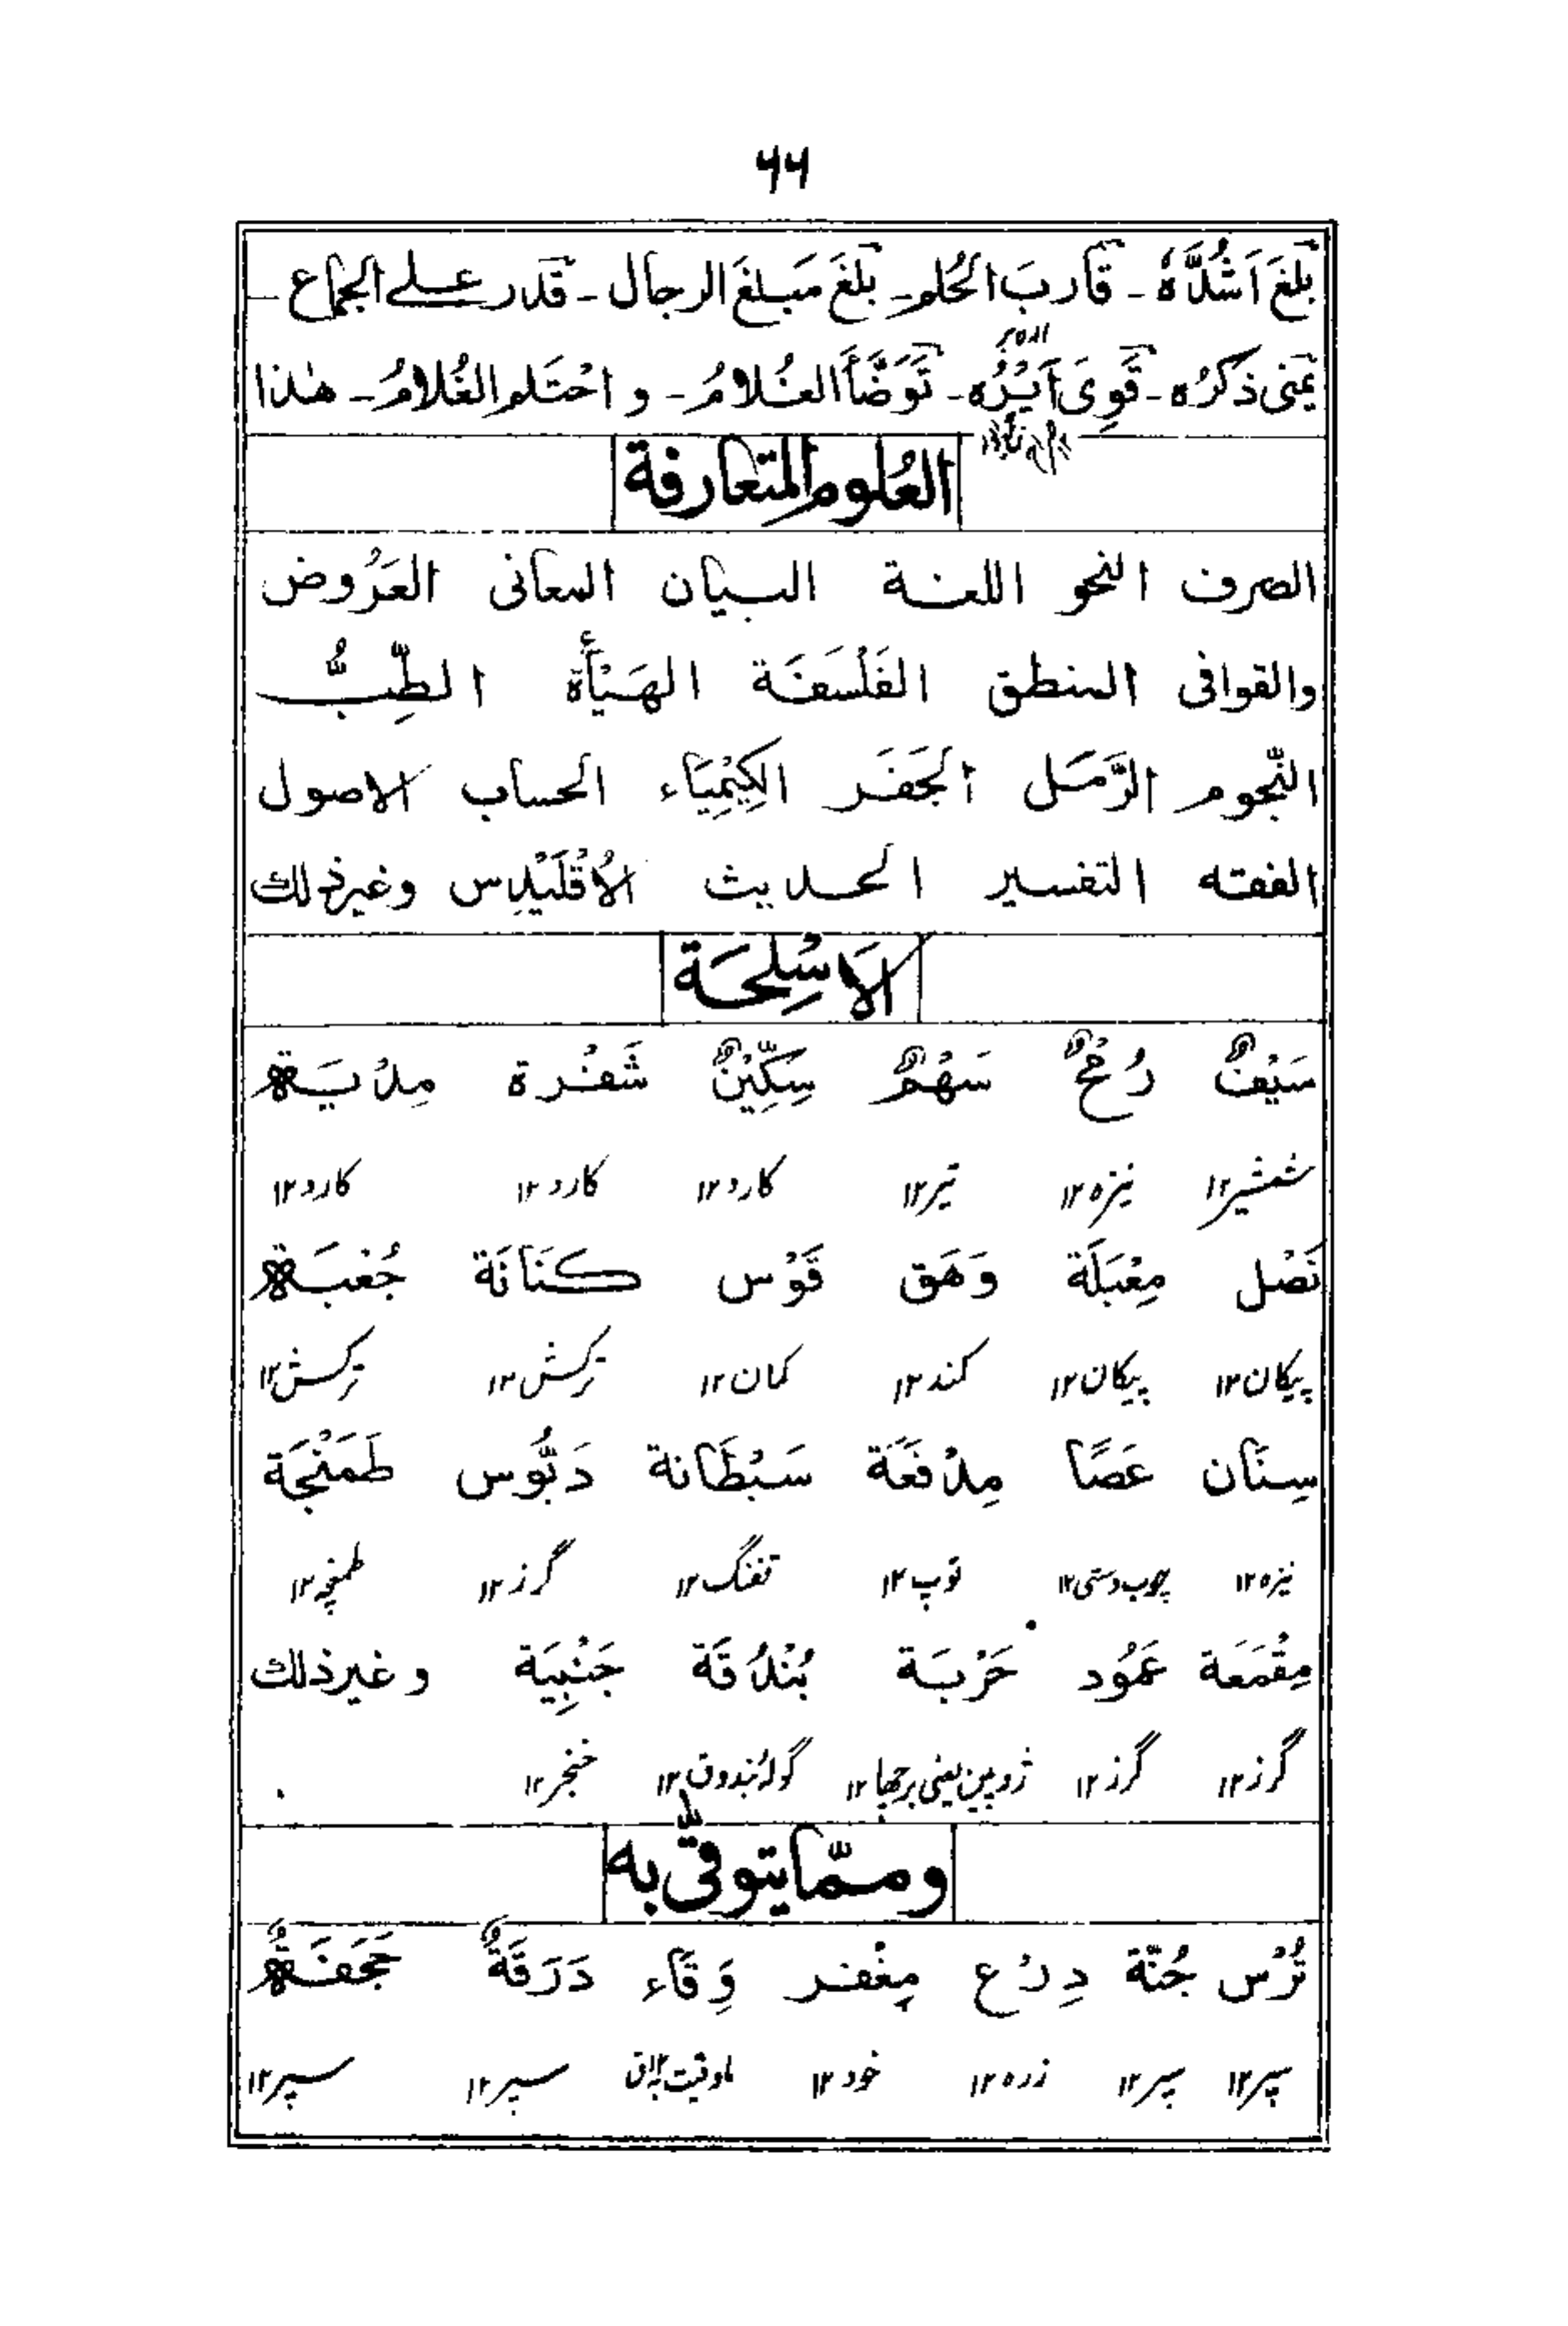 ۶۶
بَلَغَ اَشُدَّهٗ ـ قَارَبَ الحُلم ـ بَلَغَ مَبلَغَ الرجال ـ قَدَر علے الجماع ـ
یمنی ذکرُہ ـ قَوِیَ اَیْرُہ ـ تَوَضَّأَ الغُلامُ ـ و احْتَلم الغُلامُ ـ ھٰذا
العُلوم المتعارفة
الصرف النحو اللغة البیان المعانی العَرُوض
والقوافی المنطق الفَلْسَفَة الھَیْأَة الطِّبُّ
النّجوم الرَّمَل الجَفَر الکِیْمِیَاء الحساب الاصول
الفقه التفسیر الحدیث الاُقْلَیْدِس وغیرذلك
الاَسْلِحَة
سَیْفٌ رُمْحٌ سَھْمٌ سِکِّیْنٌ شَفْرَة مِدْیَةٌ
شمشیر۱۲ نیزه۱۲ تیر۱۲ کارد۱۲ کارد۱۲ کارد۱۲
نَصْل مِعْبَلَة وَھَق قَوْس کَنَانَة جُعْبَةٌ
پیکان۱۲ پیکان۱۲ کمند۱۲ کمان۱۲ ترکش۱۲ ترکش۱۲
سِنَان عَصًا مِدْفَعَة سَبْطَانة دَبُّوس طَمَنْجَة
نیزه۱۲ چوب دستی۱۲ توپ۱۲ تفنگ۱۲ گرز۱۲ طمنچہ۱۲
مِقْمَعَة عَمُود حَرْبَة بُنْدُقَة جَنْبِیَة وغیرذلك
گرز۱۲ گرز۱۲ ژوپین یعنی برچھا۱۲ گولۂ بندوق۱۲ خنجر۱۲
وممّا یتوقّی به
تُرْس جُنّة دِرْع مِغْفر وِقَاء دَرَقَةٌ حَجَفَةٌ
سپر۱۲ سپر۱۲ زره۱۲ خود۱۲ سپر۱۲ سپر۱۲